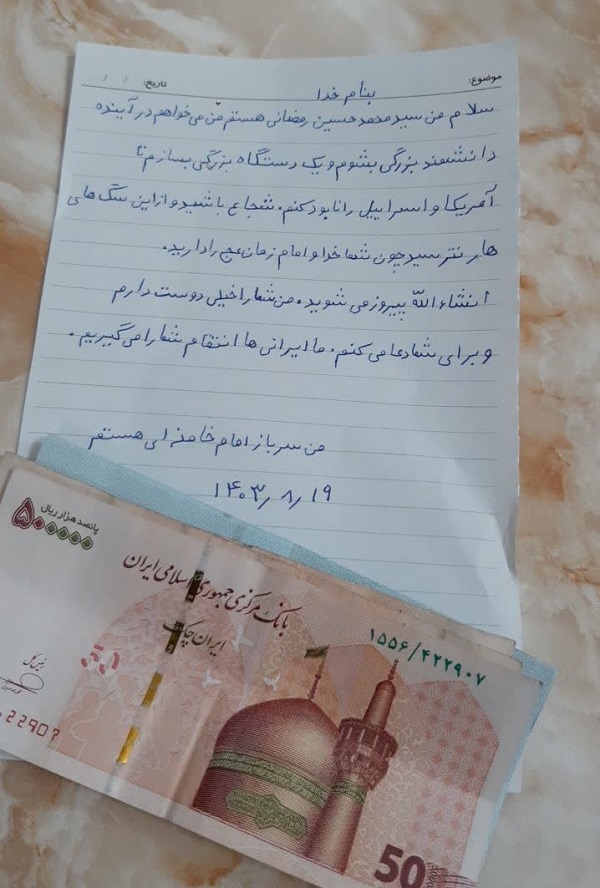 موضوع:
تاریخ: / /
بنام خدا
سلام من سید محمد حسین رمضانی هستم من می خواهم در آینده
دانشمند بزرگی بشوم و یک دستگاه بزرگی بسازم تا
آمریکا و اسراییل را نابود کنم. شجاع باشید و از این سگ های
هار نترسید چون شما خدا و امام زمان عج را دارید.
انشاءالله پیروز می شوید. من شما را خیلی دوست دارم
و برای شما دعا می کنم. ما ایرانی ها انتقام شما را می گیریم.
من سرباز امام خامنه ای هستم
۱۴۰۳/۸/۱۹
پانصد هزار ریال
۵۰۰۰۰۰
بانک مرکزی جمهوری اسلامی ایران
ایران چک
۱۵۵۶/۴۲۲۹۰۷
50
22907
50